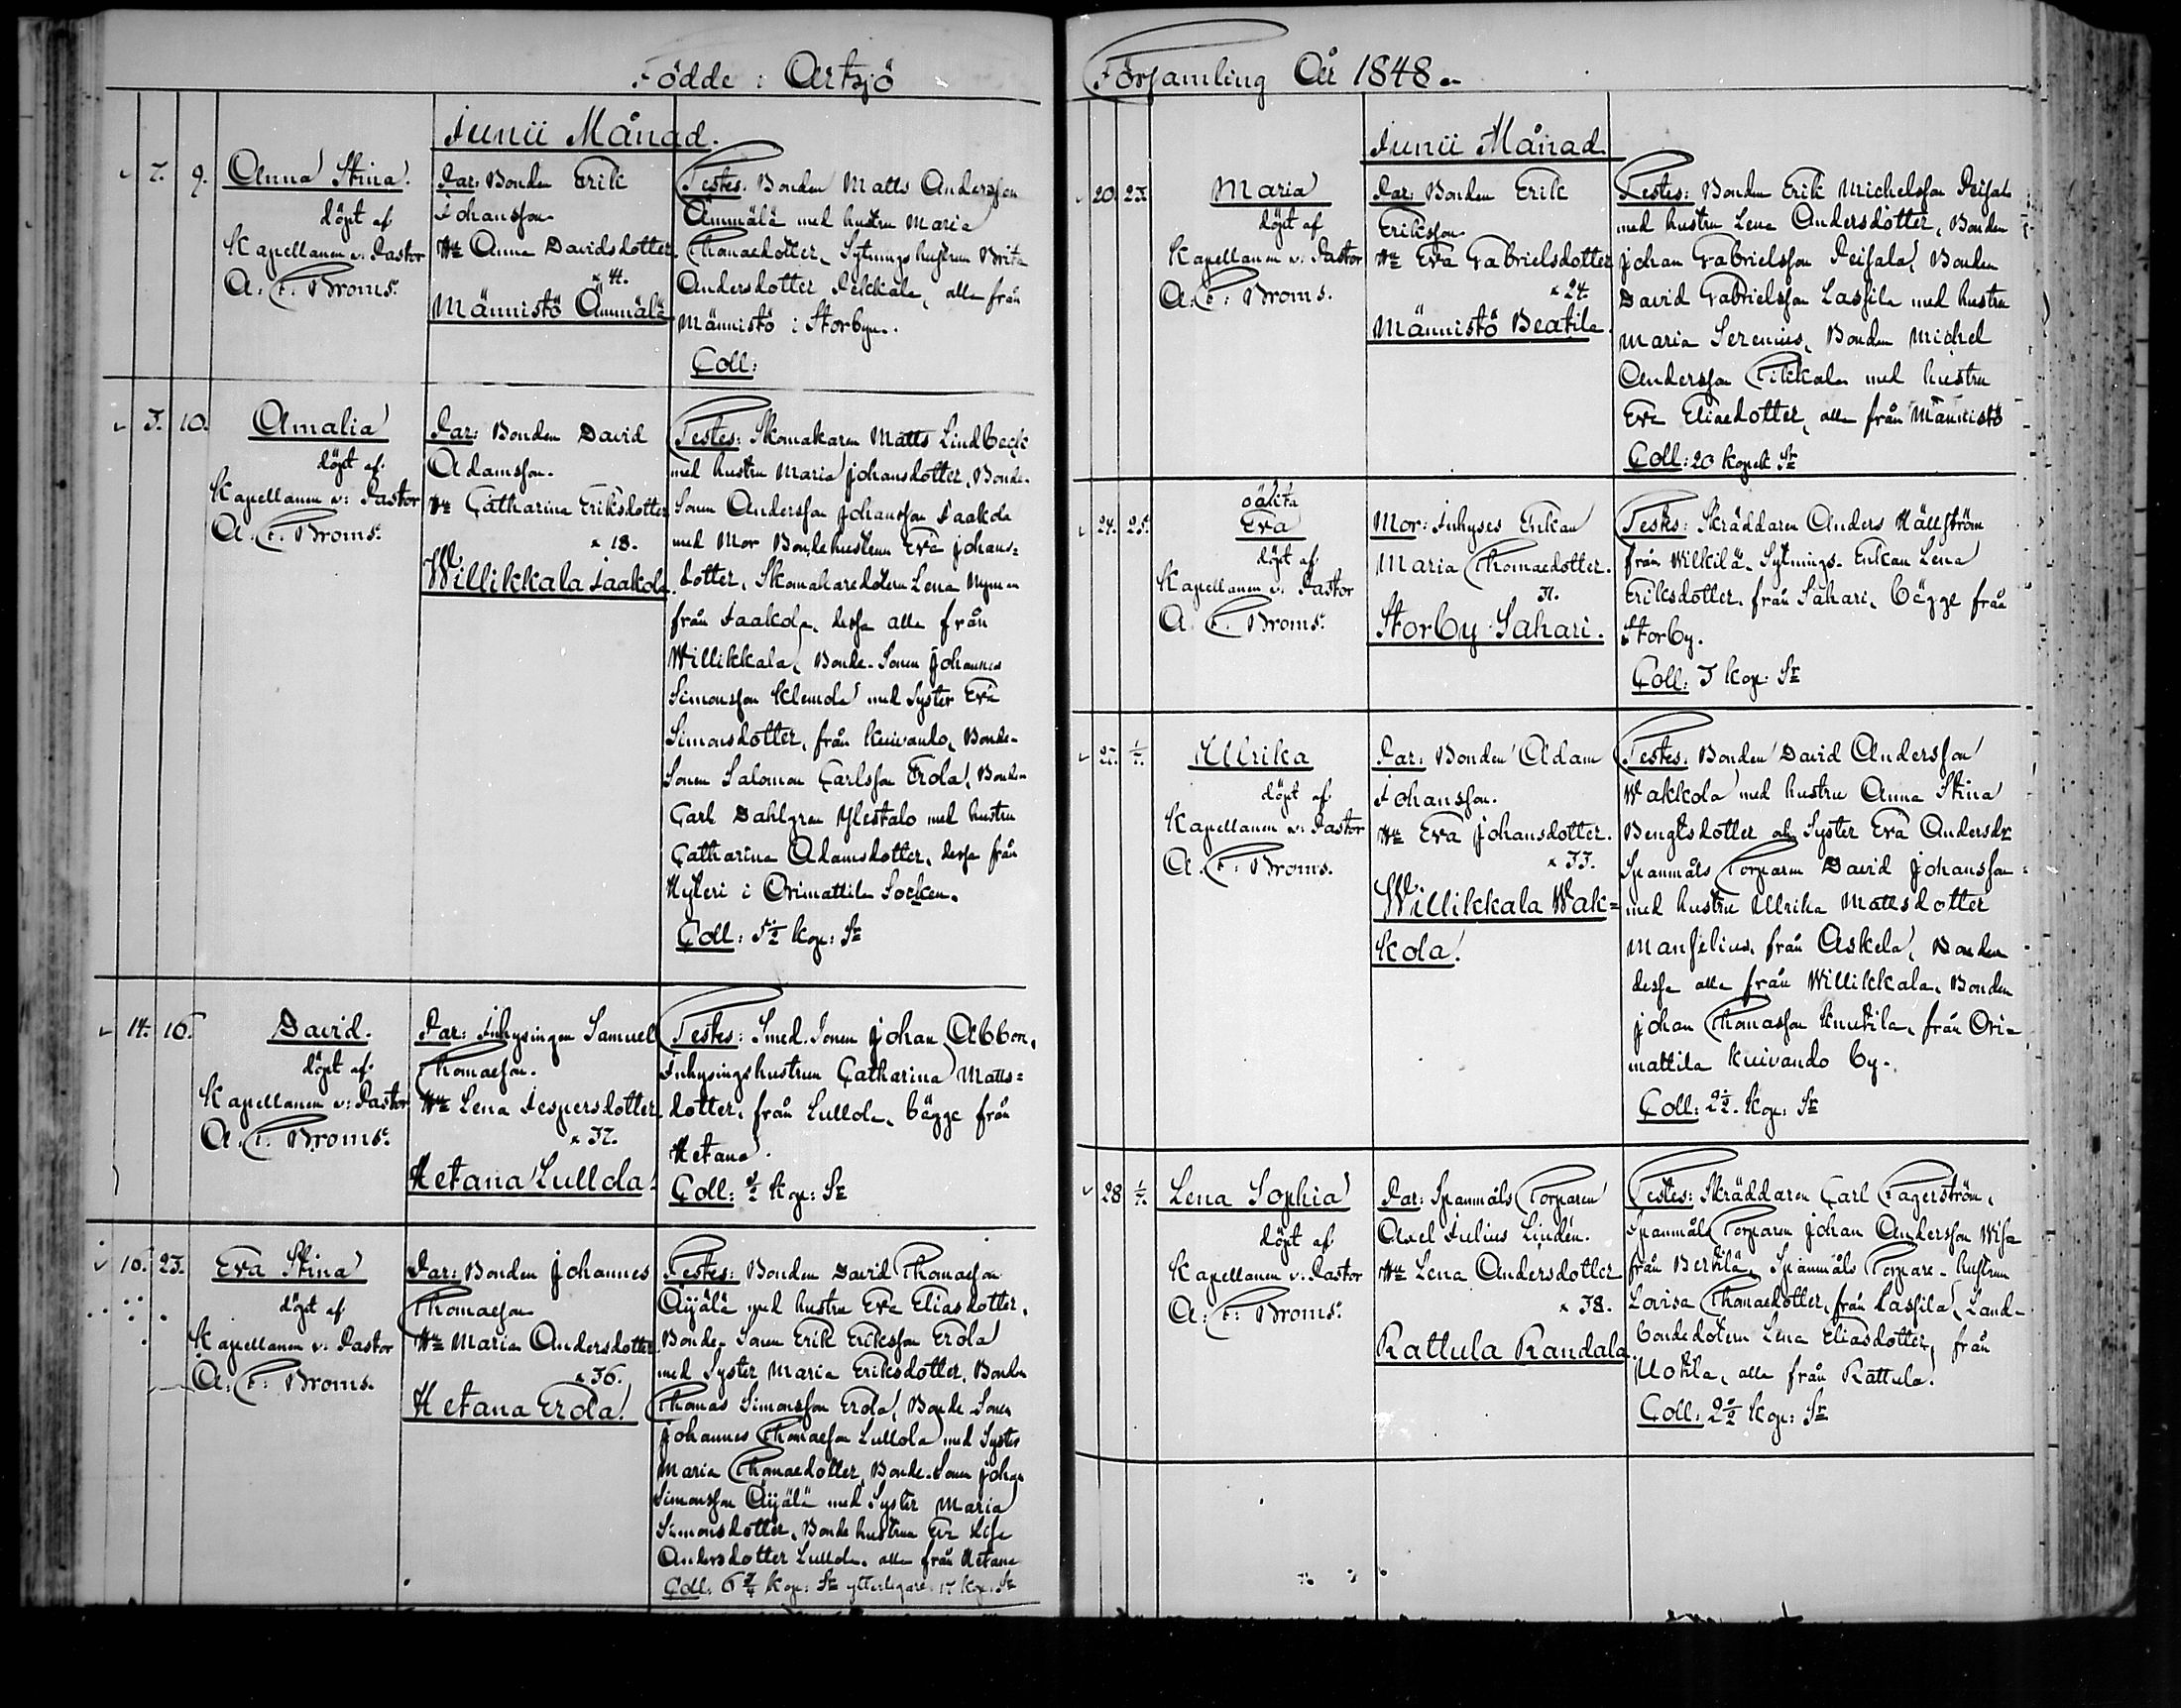 Födde i Artsjö
Junii Månad.
7. 9. Anna Stina.
döpt af
Kapellanen v: Pastor
A. F. Broms.
Far: Bonden Erik
Johansson
Hu Anna Davidsdotter
Männistö Ämmälä
Testes. Bonden Matts Andersson
Ämmälä med hustru Maria
Thomaedotter, Sytnings hustrun Brita
Andersdotter Pekkala, alla från
Männistö i Storbyn.
Coll:
10. Amalia
döpt af
Kapellanen v: Pastor
A. F. Broms.
Far: Bonden David
Adamsson.
Hu Catharina Eriksdotter
× 18.
Willikkala Jaakola.
Testes: Skomakaren Matts Lindbeck
med hustru Maria Johansdotter, Bonde-
Sonen Andersson Johansson Jaakola
med Mor Bondehustrun Eva Johans-
dotter, Skomakaredotern Lena Nyman
från Jaakola, dessa alla från
Willikkala, Bonde-Sonen Johannes
Simonsson Klemola med Syster Eva
Simonsdotter, från Kuivando, Bonde-
Sonen Salomon Carlsson Erola, Bonden
Carl Dahlgren Ylestalo med hustru
Catharina Adamsdotter, dessa från
Hyteri i Orimattila Socken.
Coll: 5½ kop: Sr
14. 16. David.
döpt af
Kapellanen v: Pastor
A. F. Broms.
Far: Inhysingen Samuel
Thomaeson.
Hu Lena Jespersdotter
× 37.
Hetana Lullola.
Testes: Smed-Sonen Johan Abbon,
Inhysingshustrun Catharina Matts=
dotter, från Lullola, bägge från
Hetana.
Coll: kop: Sr
16. 23. Eva Stina
döpt af
Kapellanen v: Pastor
A. F. Broms.
Far: Bonden Johannes
Thomaeson
Hu Maria Andersdotter
× 36.
Hetana Erola.
Testes: Bonden David Thomaeson
Äijälä med hustru Eva Eliasdotter,
Bonde-Sonen Erik Eriksson Erola
med Syster Maria Eriksdotter, Bonden
Thomas Simonsson Erola, Bonde-Sonen
Johannes Thomaeson Lullola med Syster
Maria Thomaedotter, Bonde-Sonen Johan
Simonsson Äijälä med Syster Maria
Simonsdotter, Bonde hustrun Eva Lisa
Andersdotter Lullola, alla från Hetana
Coll: 6¾ kop: Sr ytterligare 17 kop: Sr
Församling År 1848.
Junii Månad.
20. 25. Maria
döpt af
Kapellanen v. Pastor
A. F. Broms.
Far: Bonden Erik
Eriksson
Hu Eva Gabrielsdotter
× 24.
Männistö Beatila.
Testes: Bonden Erik Michelsson Peisala
med hustru Lena Andersdotter, Bonden
Johan Gabrielsson Peisala, Bonden
David Gabrielsson Lassila med hustru
Maria Serenius, Bonden Michel
Andersson Pikkala med hustru
Eva Eliaedotter, alla från Männistö
Coll: 20 kopek Sr
24. 25. oäkta
Eva
döpt af
Kapellanen v. Pastor
A. F. Broms.
Mor: Inhyses Enkan
Maria Thomaedotter.
31.
Storby Sahari.
Testes: Skräddaren Anders Hällström
från Wilkilä, Sytnings-Enkan Lena
Eriksdotter, från Sahari, bägge från
Storby.
Coll: 3 kop: Sr
27. 1/7. Ulrika
döpt af
Kapellanen v: Pastor
A. F. Broms.
Far: Bonden Adam
Johansson.
Hu Eva Johansdotter.
× 33.
Willikkala Wak=
kola.
Testes. Bonden David Andersson
Wakkola med hustru Anna Stina
Bengtsdotter och Syster Eva Andersdr
Spanmåls Torparen David Johansson
med hustru Ulrika Mattsdotter
Manselius, från Askela, Bonden
dessa alla från Willikkala, Bonden
Johan Thomasson Knutila, från Ori-
mattila Kuivando by.
Coll: 2½ kop: Sr
28 1/7. Lena Sophia
döpt af
Kapellanen v. Pastor
A: F: Broms.
Far: Spanmåls Torparen
Axel Julius Lindén.
Hu Lena Andersdotter
× 38.
Rattula Randala.
Testes: Skräddaren Carl Fagerström,
Spanmåls Torparen Johan Andersson Wisa
från Berttilä, Spanmåls Torpare-hustrun
Lovisa Thomaedotter, från Lassila, Land-
bondedotern Lena Eliasdotter, från
Uotila, alla från Rattula.
Coll. 2½ kop: Sr